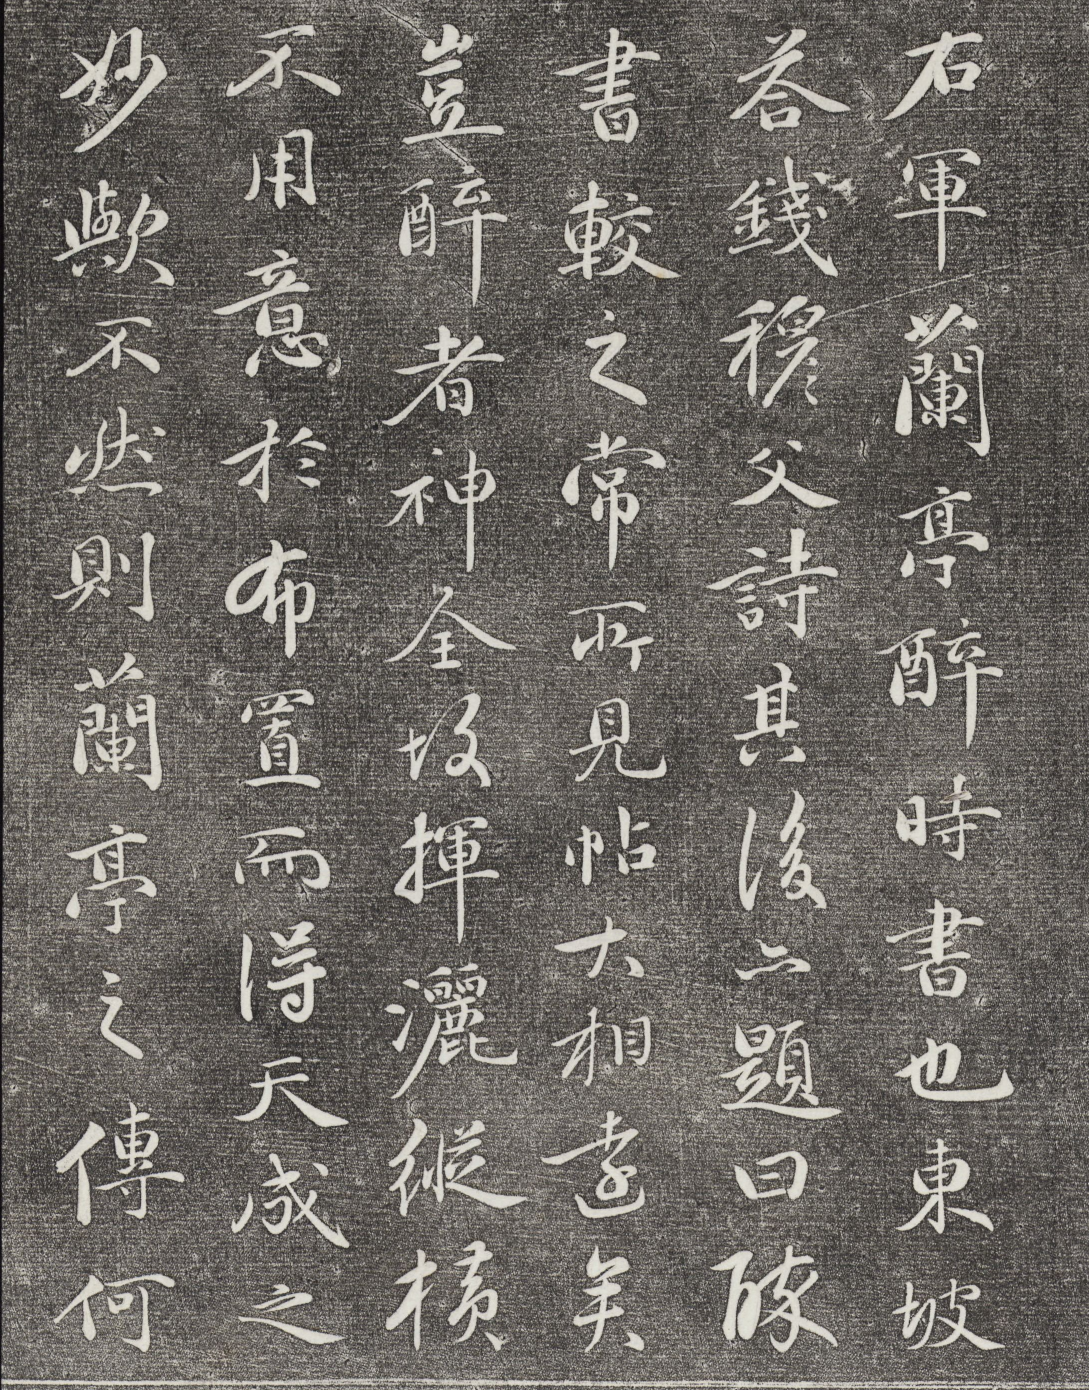 右軍蘭亭醉時書也東坡
荅錢穆父詩其後亦題曰醉
書較之常所見帖大相遠矣
豈醉者神全故揮灑縱橫
不用意於布置而得天成之
妙歟不然則蘭亭之傳何